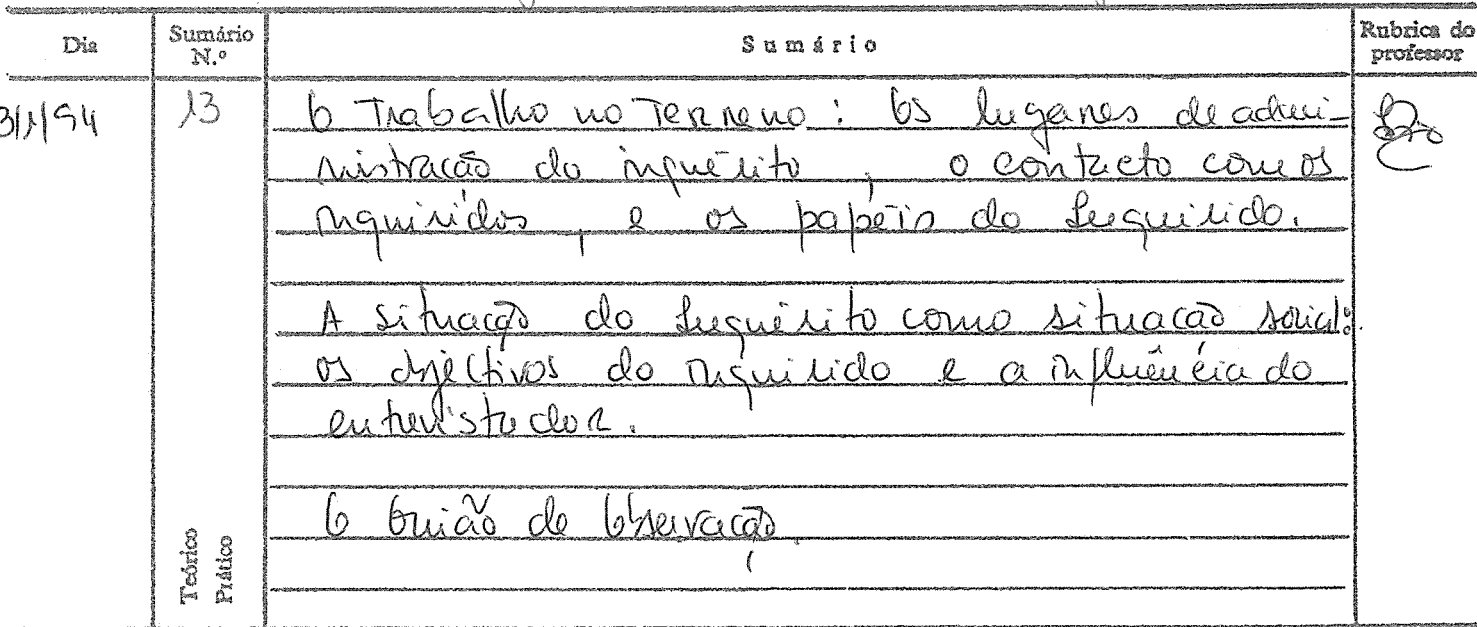 Dia
Sumário N.º
Sumário
Rubrica do professor
3/1/94
13
O Trabalho no Terreno : Os lugares de admi-
nistração do inquérito , o contacto com os
inquiridos , e os papéis do Inquirido.
A situação do Inquérito como situação social:
os objectivos do inquirido e a influência do
entrevistador.
O Guião de Observação.
Teórico
Prático